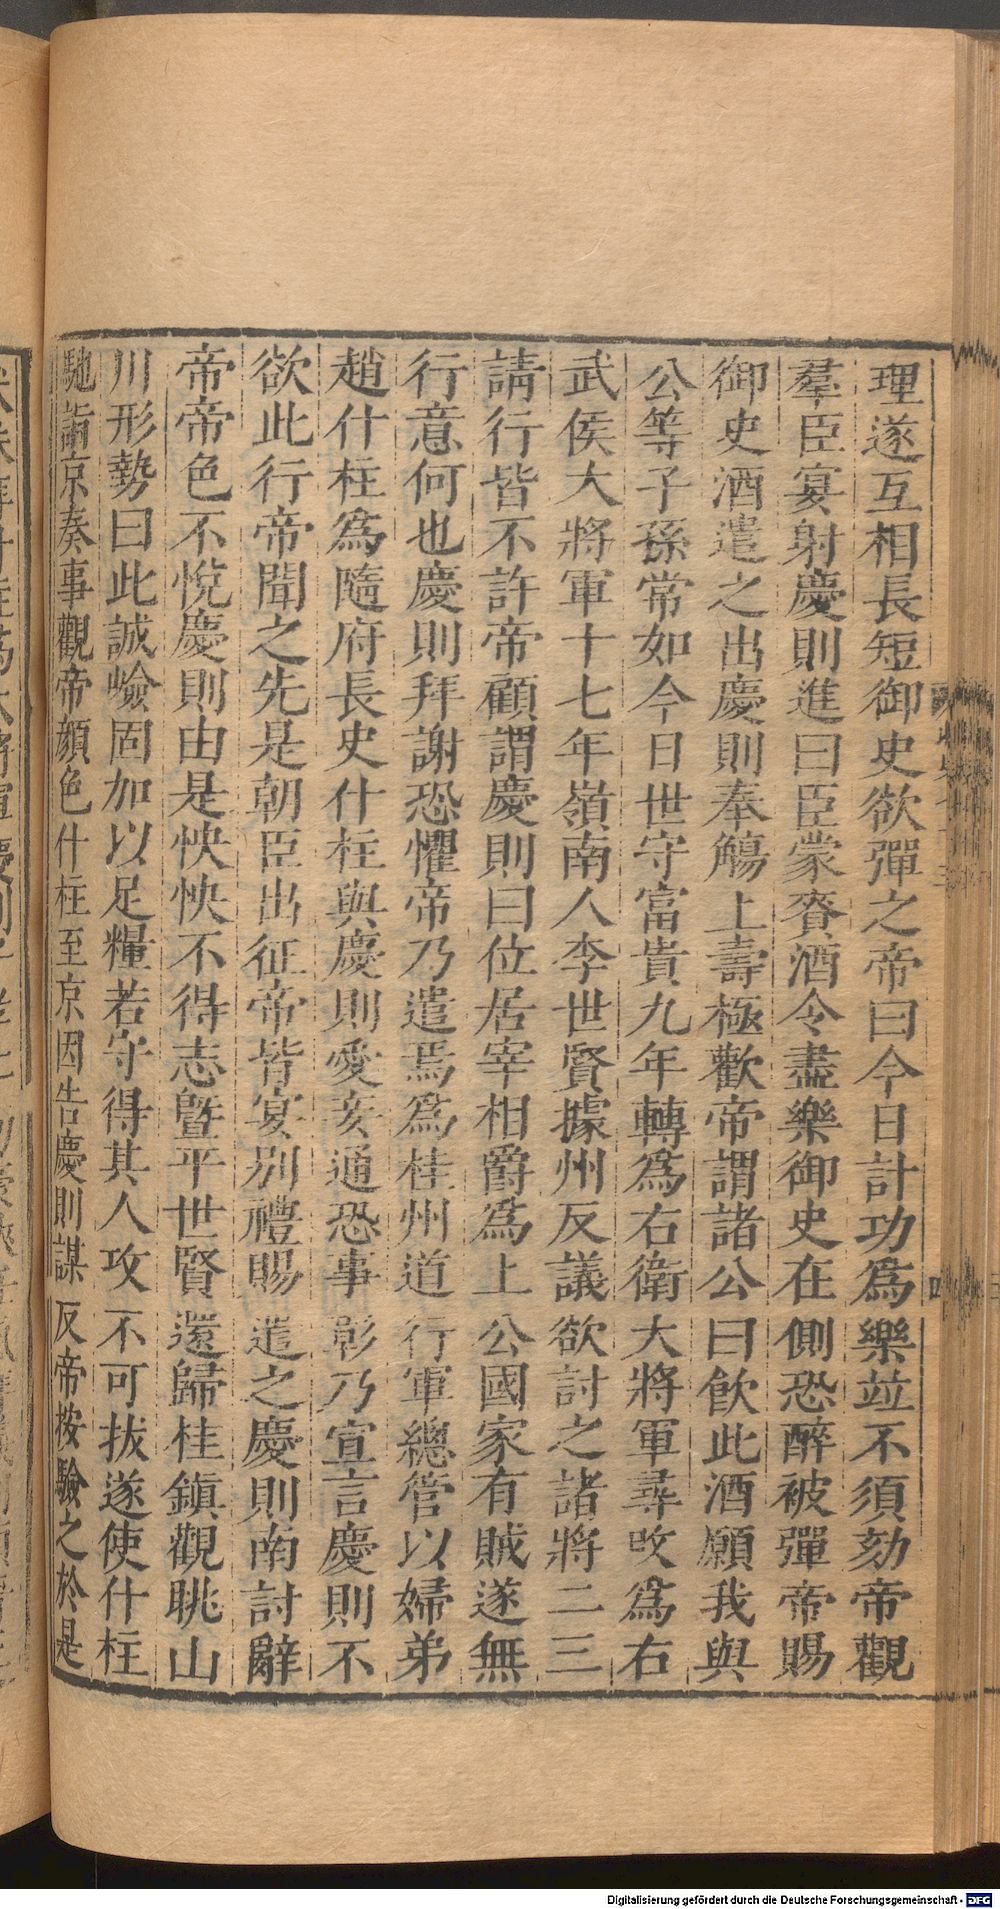 理遂互相長短御史欲彈之帝曰今日計功爲樂竝不須劾帝觀
羣臣宴射慶則進曰臣蒙賚酒令盡樂御史在側恐醉被彈帝賜
御史酒遣之出慶則奉觴上壽極歡帝謂諸公曰飮此酒願我與
公等子孫常如今日世守富貴九年轉爲右衛大將軍尋攺爲右
武侯大將軍十七年嶺南人李世賢據州反議欲討之諸將二三
請行皆不許帝顧謂慶則曰位居宰相爵爲上公國家有賊遂無
行意何也慶則拜謝恐懼帝乃遣焉爲桂州道行軍總管以婦弟
趙什柱爲隨府長史什柱與慶則愛妾通恐事彰乃宣言慶則不
欲此行帝聞之先是朝臣出征帝皆宴别禮賜遣之慶則南討辭
帝帝色不悅慶則由是怏怏不得志曁平世賢還歸桂鎮觀眺山
川形勢曰此誠嶮固加以足糧若守得其人攻不可拔遂使什柱
馳詣京奏事觀帝顔色什柱至京因告慶則謀反帝按驗之於是
Digitalisierung gefördert durch die Deutsche Forschungsgemeinschaft - DFG